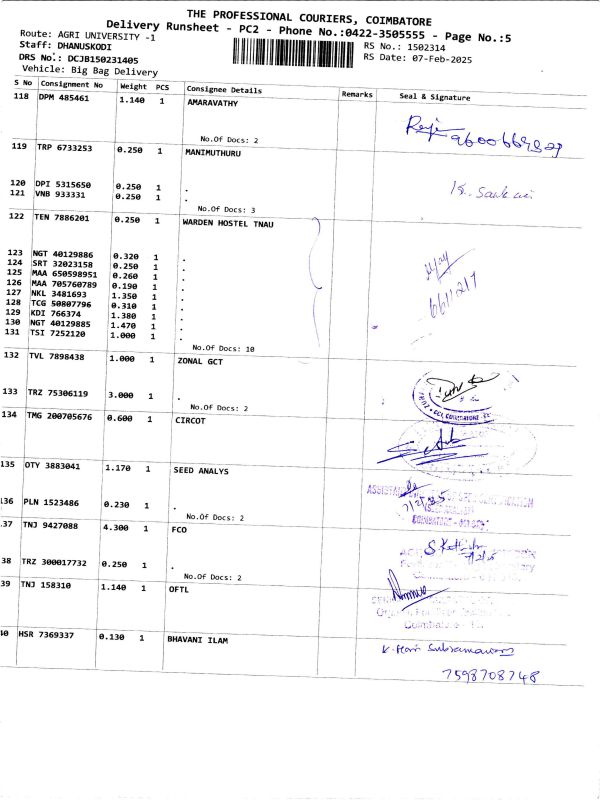 THE PROFESSIONAL COURIERS, COIMBATORE
Delivery Runsheet - PC2 - Phone No.:0422-3505555 - Page No.:5
Route: AGRI UNIVERSITY -1
RS No.: 1502314
Staff: DHANUSKODI
RS Date: 07-Feb-2025
DRS No.: DCJB150231405
Vehicle: Big Bag Delivery
S No Consignment No Weight PCS Consignee Details Remarks Seal & Signature
118 DPM 485461 1.140 1 AMARAVATHY
No.Of Docs: 2
119 TRP 6733253 0.250 1 MANIMUTHURU
120 DPI 5315650 0.250 1 .
121 VNB 933331 0.250 1 .
No.Of Docs: 3
122 TEN 7886201 0.250 1 WARDEN HOSTEL TNAU
123 NGT 40129886 0.320 1 .
124 SRT 32023158 0.250 1 .
125 MAA 650598951 0.260 1 .
126 MAA 705760789 0.190 1 .
127 NKL 3481693 1.350 1 .
128 TCG 50807796 0.310 1 .
129 KDI 766374 1.380 1 .
130 NGT 40129885 1.470 1 .
131 TSI 7252120 1.000 1 .
No.Of Docs: 10
132 TVL 7898438 1.000 1 ZONAL GCT
133 TRZ 75306119 3.000 1 .
No.Of Docs: 2
134 TMG 200705676 0.600 1 CIRCOT
135 OTY 3883041 1.170 1 SEED ANALYS
136 PLN 1523486 0.230 1 .
No.Of Docs: 2
37 TNJ 9427088 4.300 1 FCO
38 TRZ 300017732 0.250 1 .
No.Of Docs: 2
39 TNJ 158310 1.140 1 OFTL
40 HSR 7369337 0.130 1 BHAVANI ILAM
7598708748